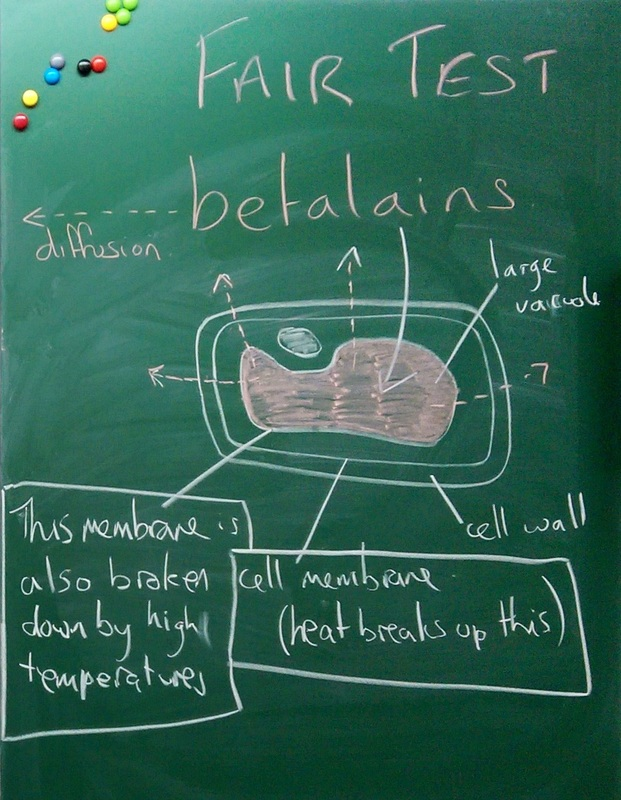 FAIR TEST
betalains
diffusion
large
vacuole
cell wall
This membrane is
also broken
down by high
temperatures
cell membrane
(heat breaks up this)